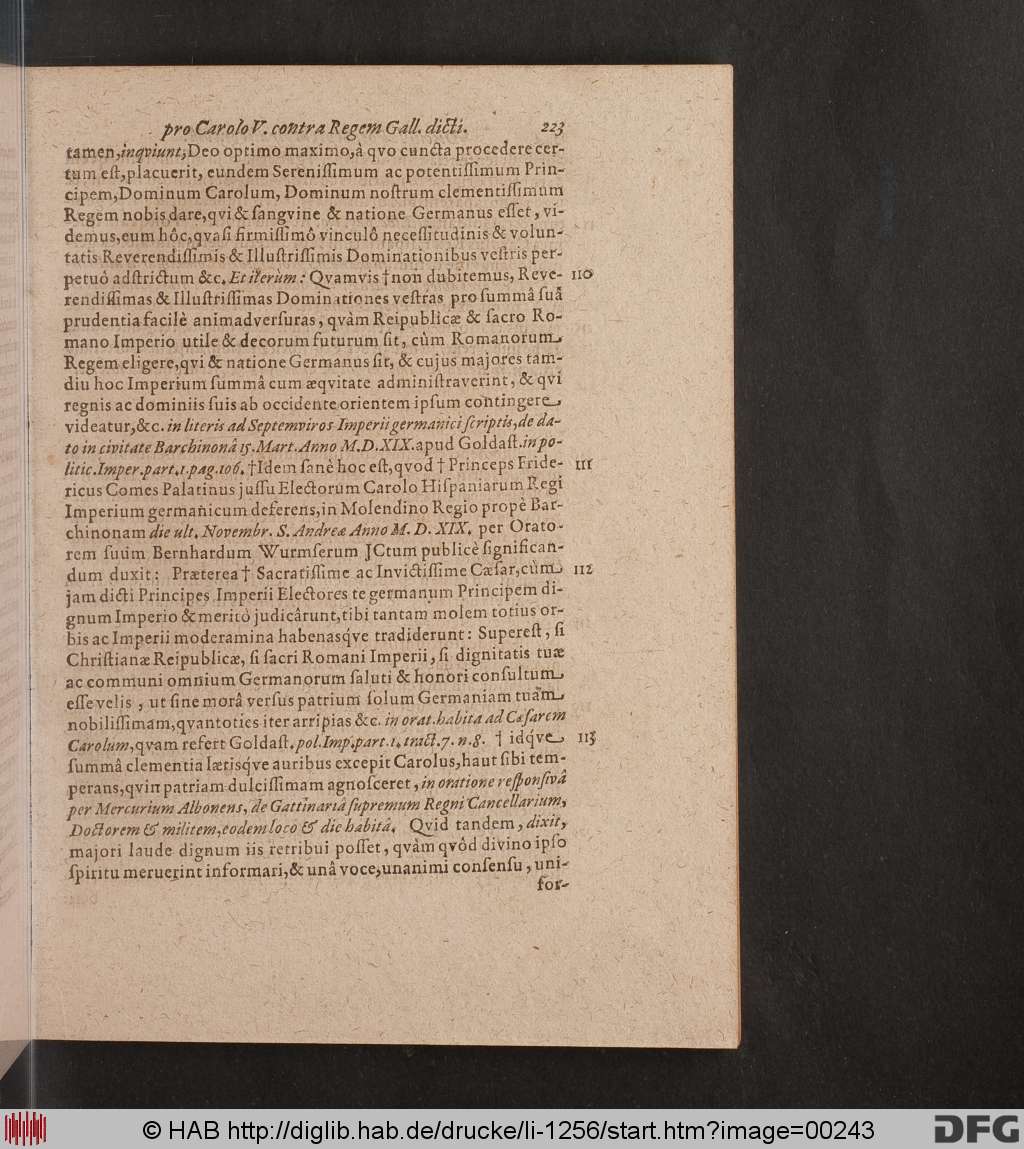 pro Carolo V. contra Regem Gall. dicti. 223
tamen,inqviunt,Deo optimo maximo,à qvo cuncta procedere cer-
tum eſt,placuerit, eundem Sereniſſimum ac potentiſſimum Prin-
cipem,Dominum Carolum, Dominum noſtrum clementiſſimum
Regem nobis dare,qvi & ſangvine & natione Germanus eſſet, vi-
demus,eum hôc,qvaſi firmiſſimô vinculô neceſſitudinis & volun-
tatis Reverendiſſimis & Illuſtriſſimis Dominationibus veſtris per-
petuò adſtrictum &c. Et iterùm: Qvamvis † non dubitemus, Reve- 110
rendiſſimas & Illuſtriſſimas Dominationes veſtras pro ſummâ ſuâ
prudentia facilè animadverſuras, qvàm Reipublicæ & ſacro Ro-
mano Imperio utile & decorum futurum ſit, cùm Romanorum
Regem eligere,qvi & natione Germanus ſit, & cujus majores tam-
diu hoc Imperium ſummâ cum æqvitate adminiſtraverint, & qvi
regnis ac dominiis ſuis ab occidente orientem ipſum contingere
videatur,&c. in literis ad Septemviros Imperii germanici ſcriptis,de da-
to in civitate Barchinonâ 15. Mart. Anno M.D.XIX. apud Goldaſt. in po-
litic. Imper. part. 1. pag. 106. † Idem ſanè hoc eſt,qvod † Princeps Fride- 111
ricus Comes Palatinus juſſu Electorum Carolo Hiſpaniarum Regi
Imperium germanicum deferens,in Molendino Regio propè Bar-
chinonam die ult. Novembr. S. Andreæ Anno M. D. XIX. per Orato-
rem ſuum Bernhardum Wurmſerum JCtum publicè ſignifican-
dum duxit: Præterea † Sacratiſſime ac Invictiſſime Cæſar,cùm 112
jam dicti Principes Imperii Electores te germanum Principem di-
gnum Imperio & meritò judicârunt,tibi tantam molem totius or-
bis ac Imperii moderamina habenasqve tradiderunt: Supereſt, ſi
Chriſtianæ Reipublicæ, ſi ſacri Romani Imperii, ſi dignitatis tuæ
ac communi omnium Germanorum ſaluti & honori conſultum
eſſe velis, ut ſine morâ verſus patrium ſolum Germaniam tuam
nobiliſſimam,qvantoties iter arripias &c. in orat. habita ad Cæſarem
Carolum,qvam refert Goldaſt. pol. Imp. part. 1. tract. 7. n. 8. † idqve 113
ſummâ clementia lætisqve auribus excepit Carolus,haut ſibi tem-
perans,qvin patriam dulciſſimam agnoſceret, in oratione reſponſivâ
per Mercurium Albonens, de Gattinariâ ſupremum Regni Cancellarium,
Doctorem & militem,eodem loco & die habitâ. Qvid tandem, dixit,
majori laude dignum iis retribui poſſet, qvàm qvôd divino ipſo
ſpiritu meruerint informari,& unâ voce,unanimi conſenſu, uni-
for-
© HAB http://diglib.hab.de/drucke/li-1256/start.htm?image=00243
DFG